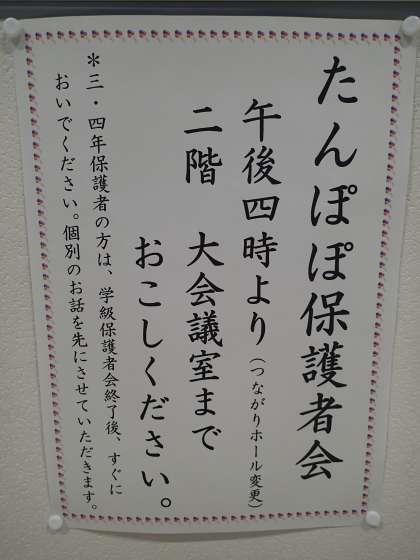 たんぽぽ保護者会
午後四時より(つながりホール変更)
二階 大会議室まで
おこしください。
＊三・四年保護者の方は、学級保護者会終了後、すぐに
おいでください。個別のお話を先にさせていただきます。